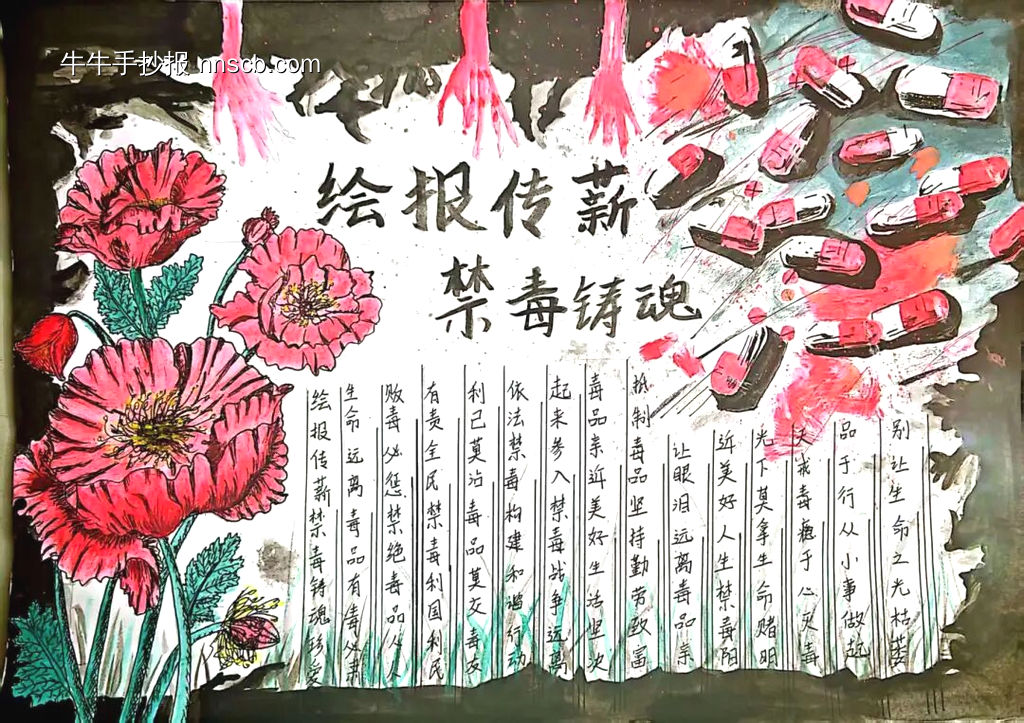 牛牛手抄报 nnscb.com
绘报传薪
禁毒铸魂
绘报传薪禁毒铸魂珍爱
生命远离毒品有毒必肃
贩毒必惩禁绝毒品人人
有责全民禁毒利国利民
利己莫沾毒品莫交毒友
依法禁毒构建和谐行动
起来参入禁毒战争远离
毒品亲近美好生活坚决
抵制毒品坚持勤劳致富
让眼泪远离毒品亲
近美好人生禁毒阳
光下莫拿生命赌明
天戒毒瘾于心灭毒
品于行从小事做起
别让生命之光枯萎